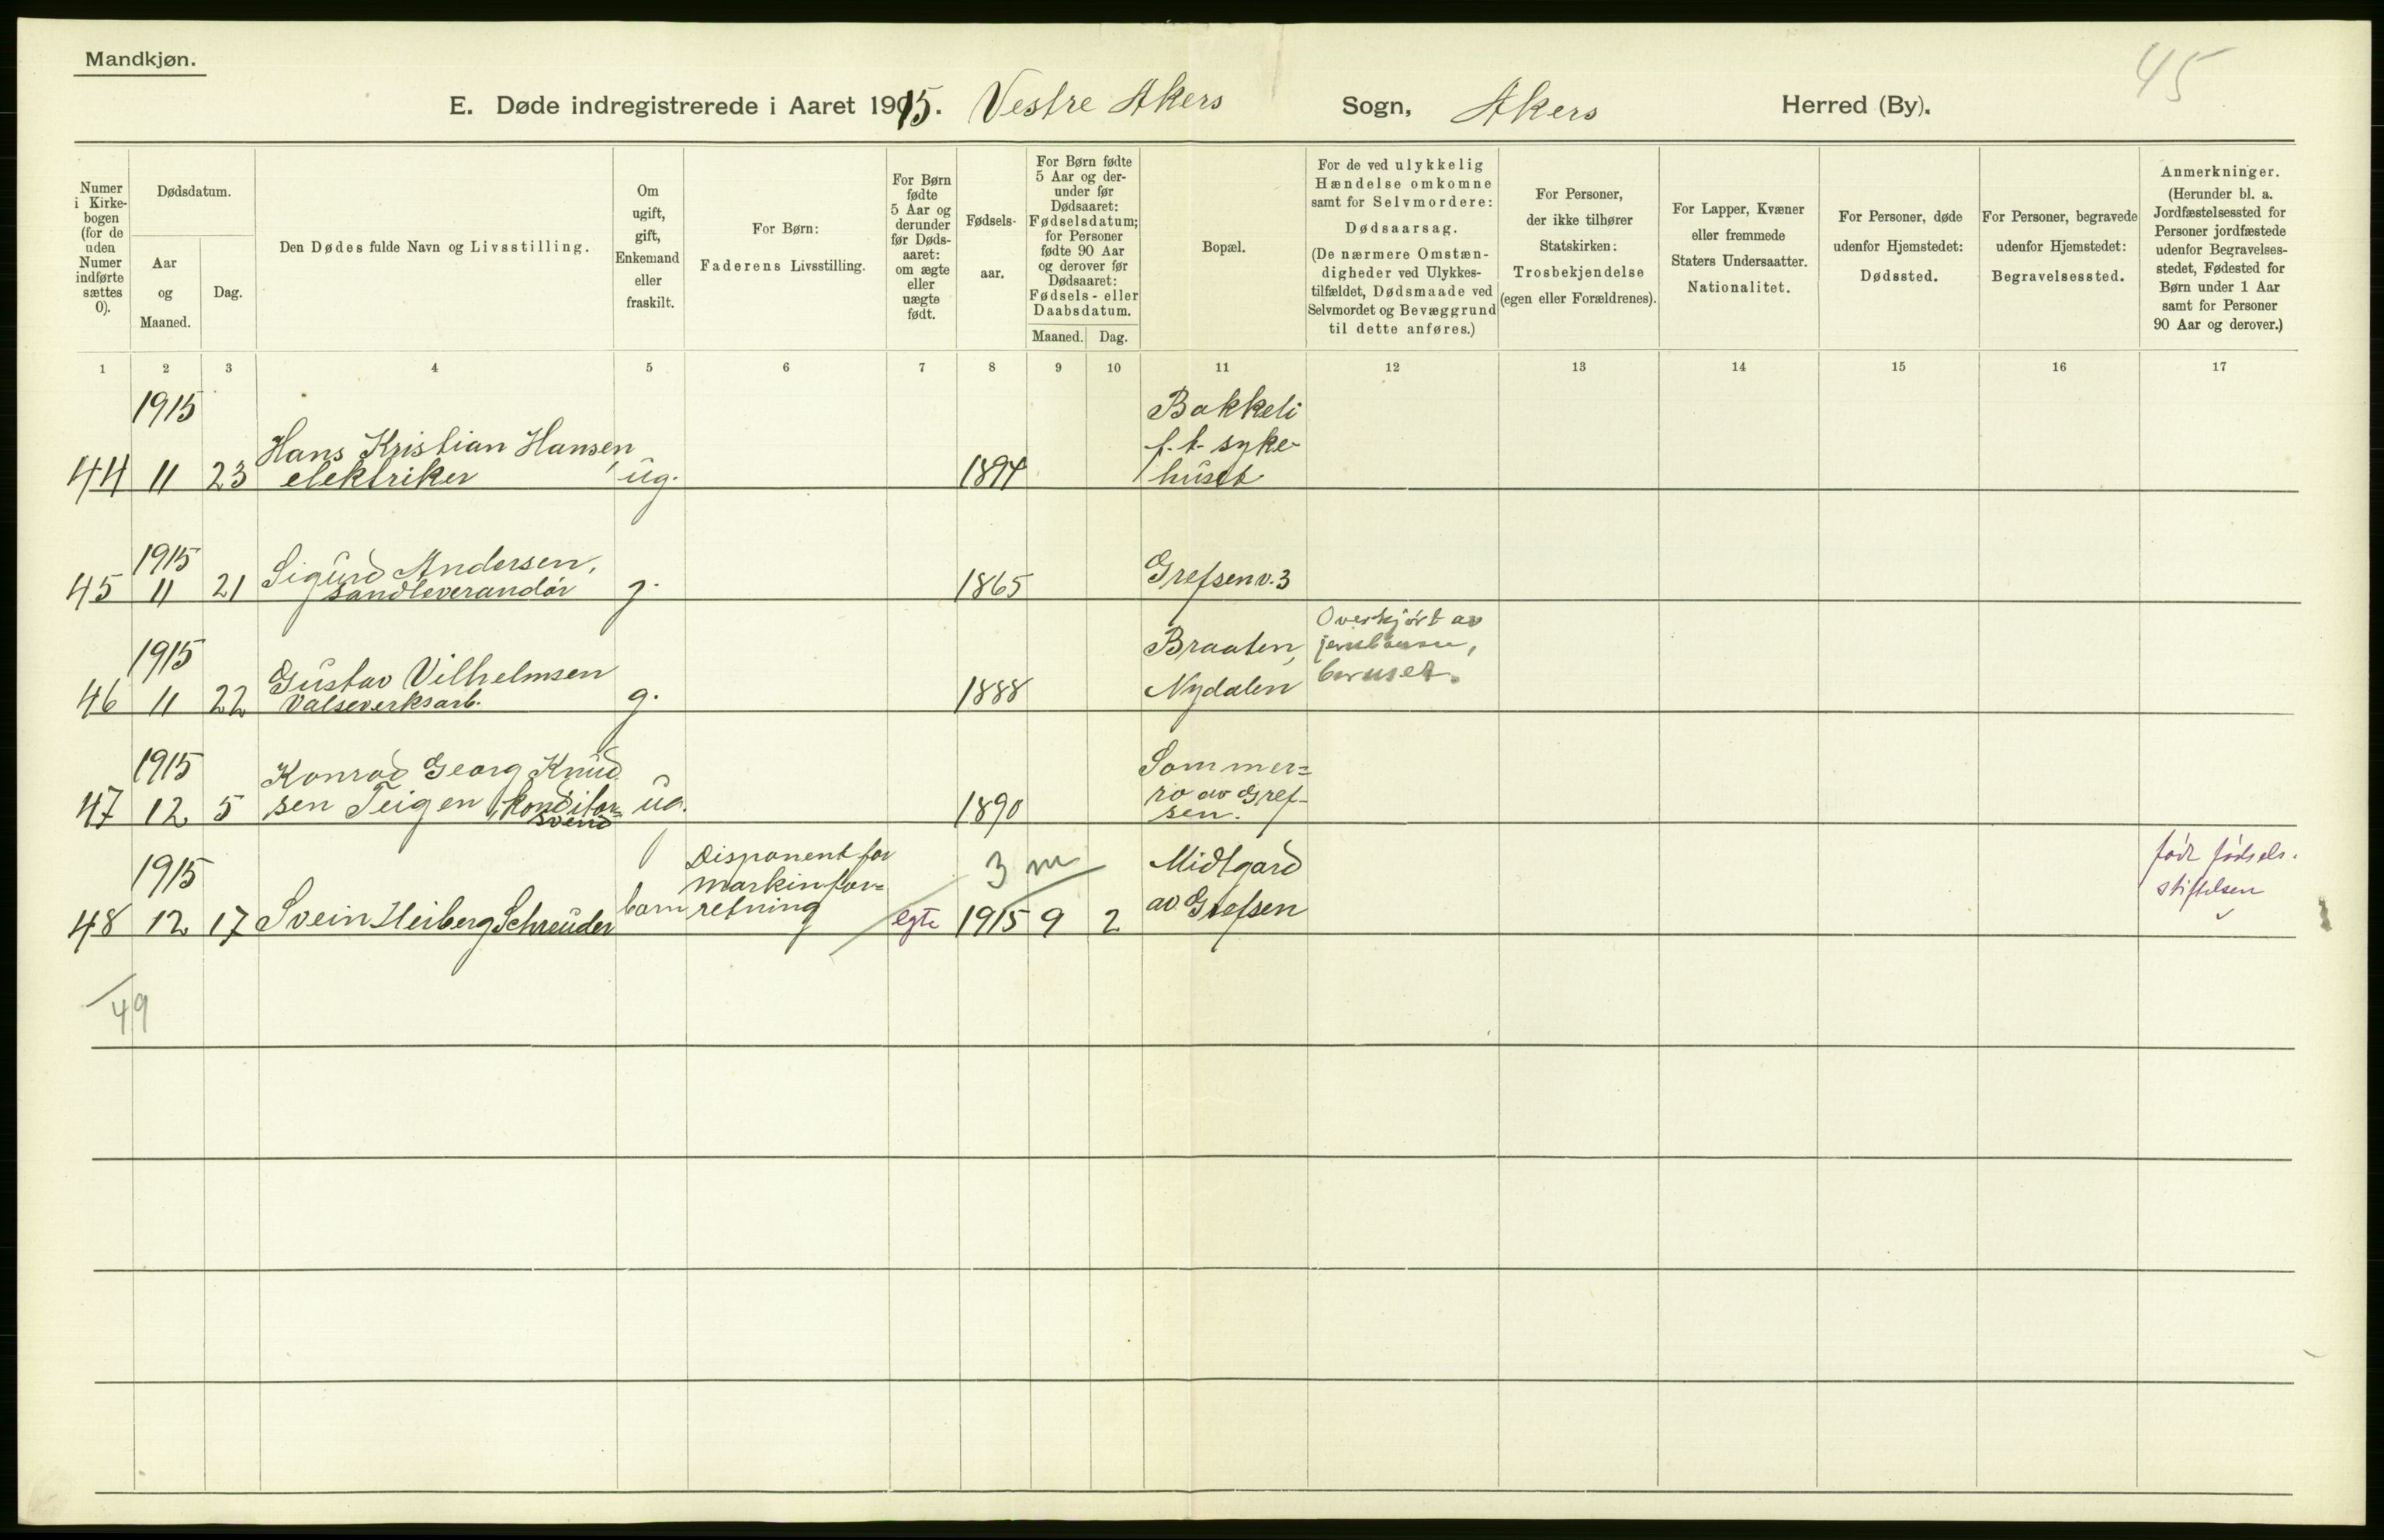 Mandkjøn.
45
E. Døde indregistrerede i Aaret 1915. Vestre Akers Sogn, Akers Herred (By).
Numer
i Kirke-
bogen
(for de
uden
Numer
indførte
sættes
0).
Dødsdatum.
Aar
og
Maaned.
Dag.
Den Dødes fulde Navn og Livsstilling.
Om
ugift,
gift,
Enkemand
eller
fraskilt.
For Børn:
Faderens Livsstilling.
For Børn
fødte
5 Aar og
derunder
før Døds-
aaret:
om ægte
eller
uægte
født.
Fødsels-
aar.
For Børn fødte
5 Aar og der-
under før
Dødsaaret:
Fødselsdatum;
for Personer
fødte 90 Aar
og derover før
Dødsaaret:
Fødsels- eller
Daabsdatum.
Maaned. Dag.
Bopæl.
For de ved ulykkelig
Hændelse omkomne
samt for Selvmordere:
Dødsaarsag.
(De nærmere Omstæn-
digheder ved Ulykkes-
tilfældet, Dødsmaade ved
Selvmordet og Bevæggrund
til dette anføres.)
For Personer,
der ikke tilhører
Statskirken:
Trosbekjendelse
(egen eller Forældrenes).
For Lapper, Kvæner
eller fremmede
Staters Undersaatter.
Nationalitet.
For Personer, døde
udenfor Hjemstedet:
Dødssted.
For Personer, begravede
udenfor Hjemstedet:
Begravelsessted.
Anmerkninger.
(Herunder bl. a.
Jordfæstelsessted for
Personer jordfæstede
udenfor Begravelses-
stedet, Fødested for
Børn under 1 Aar
samt for Personer
90 Aar og derover.)
1 2 3 4 5 6 7 8 9 10 11 12 13 14 15 16 17
1915 Bakkeli
Hans Kristian Hansen, f. t. syke-
44 11 23 elektriker ug. 1894 huset
1915 Sigurd Andersen,
45 11 21 sandleverandør g. 1865 Grefsenv. 3
1915 Gustav Vilhelmsen Braaten, Overkjørt av
jernbanen,
46 11 22 Valseverksarb. g. 1888 Nydalen beruset.
1915 Konrad Georg Knud Sommer=
47 12 5 sen Teigen, konditor= ug. 1890 ro av Gref-
svend sen.
1915 Disponent for 3 m Midtgard født fødsels.
maskinfor= stiftelsen
48 12 17 Svein Heiberg Schreuder barn retning egte 1915 9 2 av Grefsen
49